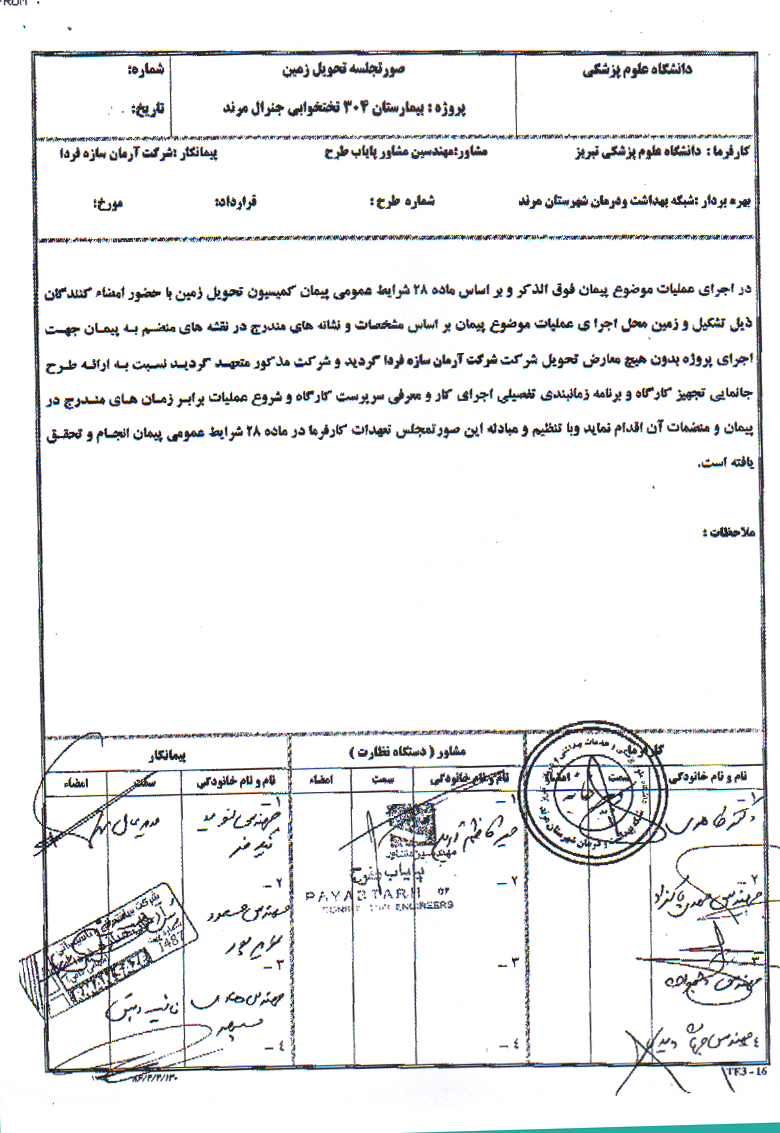 دانشگاه علوم پزشکی
صورتجلسه تحویل زمین
پروژه : بیمارستان ۳۰۴ تختخوابی جنرال مرند
شماره:
تاریخ:
کارفرما : دانشگاه علوم پزشکی تبریز مشاور:مهندسین مشاور پایاب طرح پیمانکار :شرکت آرمان سازه فردا
بهره بردار :شبکه بهداشت ودرمان شهرستان مرند شماره طرح : قرارداد: مورخ:
در اجرای عملیات موضوع پیمان فوق الذکر و بر اساس ماده ۲۸ شرایط عمومی پیمان کمیسیون تحویل زمین با حضور امضاء کنندگان
ذیل تشکیل و زمین محل اجرا ی عملیات موضوع پیمان بر اساس مشخصات و نشانه های مندرج در نقشه های منضم به پیمان جهت
اجرای پروژه بدون هیچ معارض تحویل شرکت شرکت آرمان سازه فردا گردید و شرکت مذکور متعهد گردید نسبت به ارائه طرح
جانمایی تجهیز کارگاه و برنامه زمانبندی تفصیلی اجرای کار و معرفی سرپرست کارگاه و شروع عملیات برابر زمان های مندرج در
پیمان و منضمات آن اقدام نماید وبا تنظیم و مبادله این صورتمجلس تعهدات کارفرما در ماده ۲۸ شرایط عمومی پیمان انجام و تحقق
یافته است.
ملاحظات :
کارفرما
نام و نام خانوادگی سمت امضاء
۱-
۲-
۳-
۴
مشاور ( دستگاه نظارت )
نام و نام خانوادگی سمت امضاء
۱-
۲-
۳-
۴-
مهندسین مشاور
پایاب طرح
PAYAB TARH
CONSULTING ENGINEERS
پیمانکار
نام و نام خانوادگی سمت امضاء
۱-
۲-
مهندس مسعود
۳-
۴-
TF3 - 16